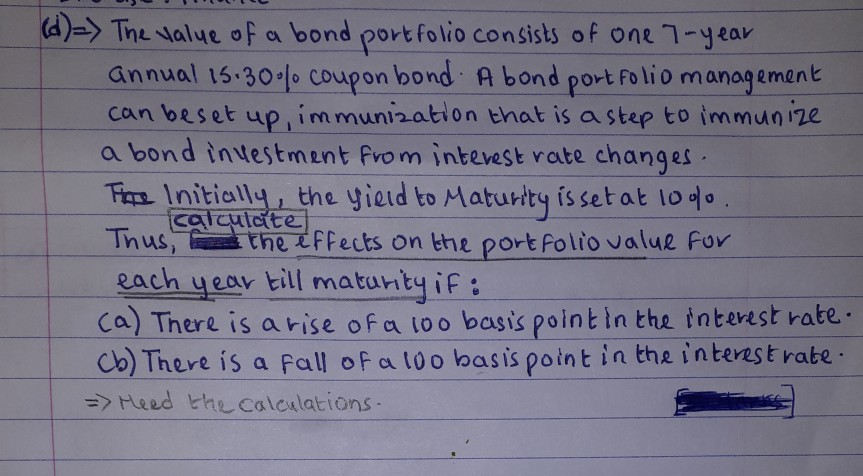 (d)=> The value of a bond portfolio consists of one 7-year
annual 15.30% coupon bond. A bond portfolio management
can be set up, immunization that is a step to immunize
a bond investment from interest rate changes.
Initially, the yield to Maturity is set at 10%.
calculate
Thus, the effects on the portfolio value for
each year till maturity if :
(a) There is a rise of a 100 basis point in the interest rate.
(b) There is a fall of a 100 basis point in the interest rate.
=> Need the calculations.